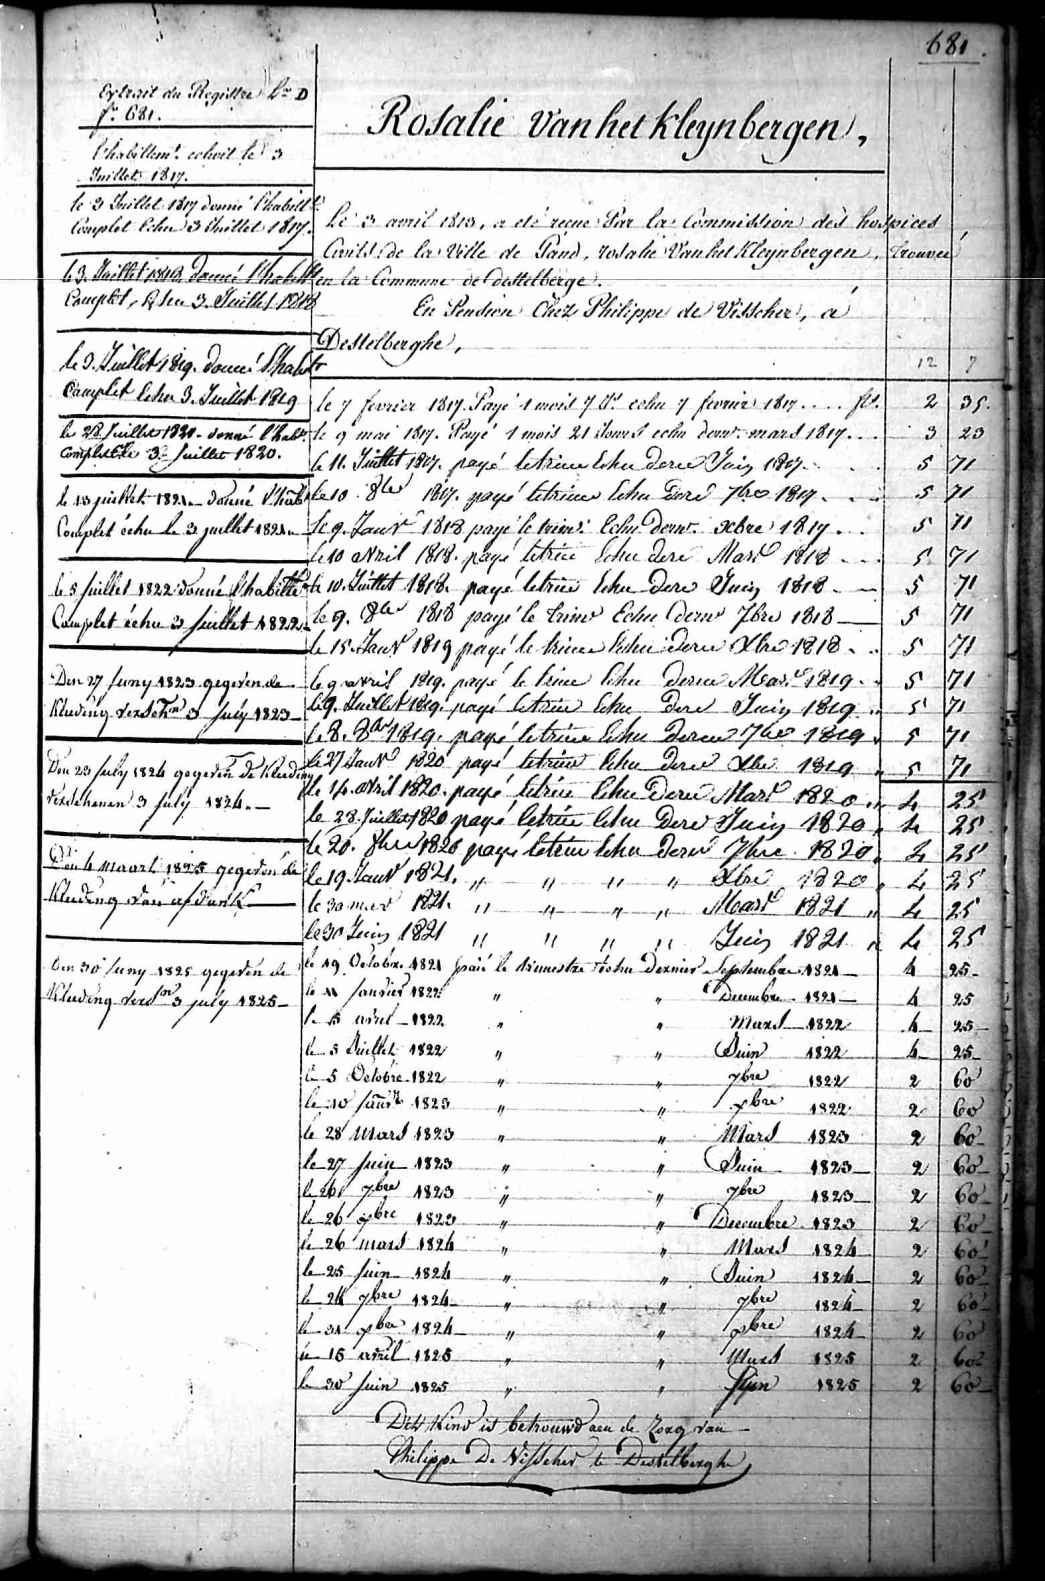 681.
Extrait du Registre Lre D
fo. 681.
l'habillemt. echoit le 3
Juillet 1817.
le 3 Juillet 1817 donné l'habillt
Complet Echu 3 Juillet 1817.
le 3. Juillet 1818 donné l'habillt
Complet, Echu 3. Juillet 1818
le 3. Juillet 1819. donné l'habilt
Complet Echu 3. Juillet 1819
le 28 Juillet 1820. donné l'habt.
Complet Ele 3 Juillet 1820.
le 13 juillet 1821. donné l'habt
Complet échu le 3 juillet 1821
le 5 juillet 1822 donné l'habillt
Complet échu 3 juillet 1822
Den 27 Juny 1823 gegeven de
Kleeding verschn 3 July 1823
Den 23 July 1824 gegeven de Kleeding
verschenen 3 july 1824.
Den 4 maart 1825 gegeven de
Kleeding
den 30 Juny 1825 gegeven de
Kleeding verschn 3 july 1825
Rosalie Vanhet Kleynbergen,
Le 3 avril 1813, a eté recue Par la Commission des hospices
Civils de la Ville de Gand, rosalie Vanhet Kleynbergen, trouvée
en la Commune de destelberge.
En Pension Chez Philippe de Visscher, á
Destelberghe,
12 7
le 7 fevrier 1817. Payé 1 mois 7 Jrs. echu 7 fevrier 1817 .... fls. 2 35.
le 9 mai 1817. Payé 1 mois 21 Jours echu dernr. mars 1817... 3 23
le 11. Juillet 1817. payé letrim Echu dere Juin 1817. 5 71
le 10. 8bre 1817. payé letrim Echu dere 7bre 1817. 5 71
le 9. Janvr 1818 payé le trimr. Echu dernr. Xbre 1817... 5 71
le 10 Avril 1818. payé letrim Echu dere Mars 1818 ... 5 71
le 10. Juillet 1818. payé letrim Echu dere Juin 1818 .. 5 71
le 9. 8bre 1818 payé le trimr Echu dernr 7bre 1818 5 71
le 15. Janvr 1819 payé le trim Echu dere Xbre 1818 .. 5 71
le 9 avril 1819. payé le trim Echu dere Mars 1819. 5 71
le 9. Juillet 1819. payé letrim Echu dere Juin 1819 .. 5 71
le 8. 8bre 1819. payé letrim Echu dere 7bre 1819 5 71
le 27 Janvr 1820 payé letrim Echu dere Xbre 1819 5 71
le 14. avril 1820. payé letrim Echu Dere Mars 1820 4 25
le 28. Juillet 1820 payé letrim Echu Dere Juin 1820 4 25
le 20. 8bre 1820 payé letrim Echu Dere 7bre 1820 4 25
le 19 Janvr 1821. " " " " Xbre 1820 4 25
le 30 mars 1821. " " " " Mars 1821 " 4 25
le 30 Juin 1821 " " " " Juin 1821 " 4 25
le 19 Octobre 1821 paié le trimestre échu Dernier Septembre 1821 4 25
le 11 Janvier 1822 " " Decembre 1821 4 25
le 15 avril 1822 " " Mars 1822 4 25
le 5 Juillet 1822 " " Juin 1822 4 25
le 5 Octobre 1822 " " 7bre 1822 2 60
le 10 Janvr 1823 " " xbre 1822 2 60
le 28 Mars 1823 " " Mars 1823 2 60
le 27 Juin 1823 " " Juin 1823 2 60
le 26 7bre 1823 " " 7bre 1823 2 60
le 26 xbre 1823 " " Decembre 1823 2 60
le 26 mars 1824 " " Mars 1824 2 60
le 25 juin 1824 " " Juin 1824 2 60
le 24 7bre 1824 " " 7bre 1824 2 60
le 31 xbre 1824 " " xbre 1824 2 60
le 15 avril 1825 " " Mars 1825 2 60
le 30 Juin 1825 " " Juin 1825 2 60
Dit Kind is betrouwd aen de Zorg van
Philippe De Visscher te Destelberghe